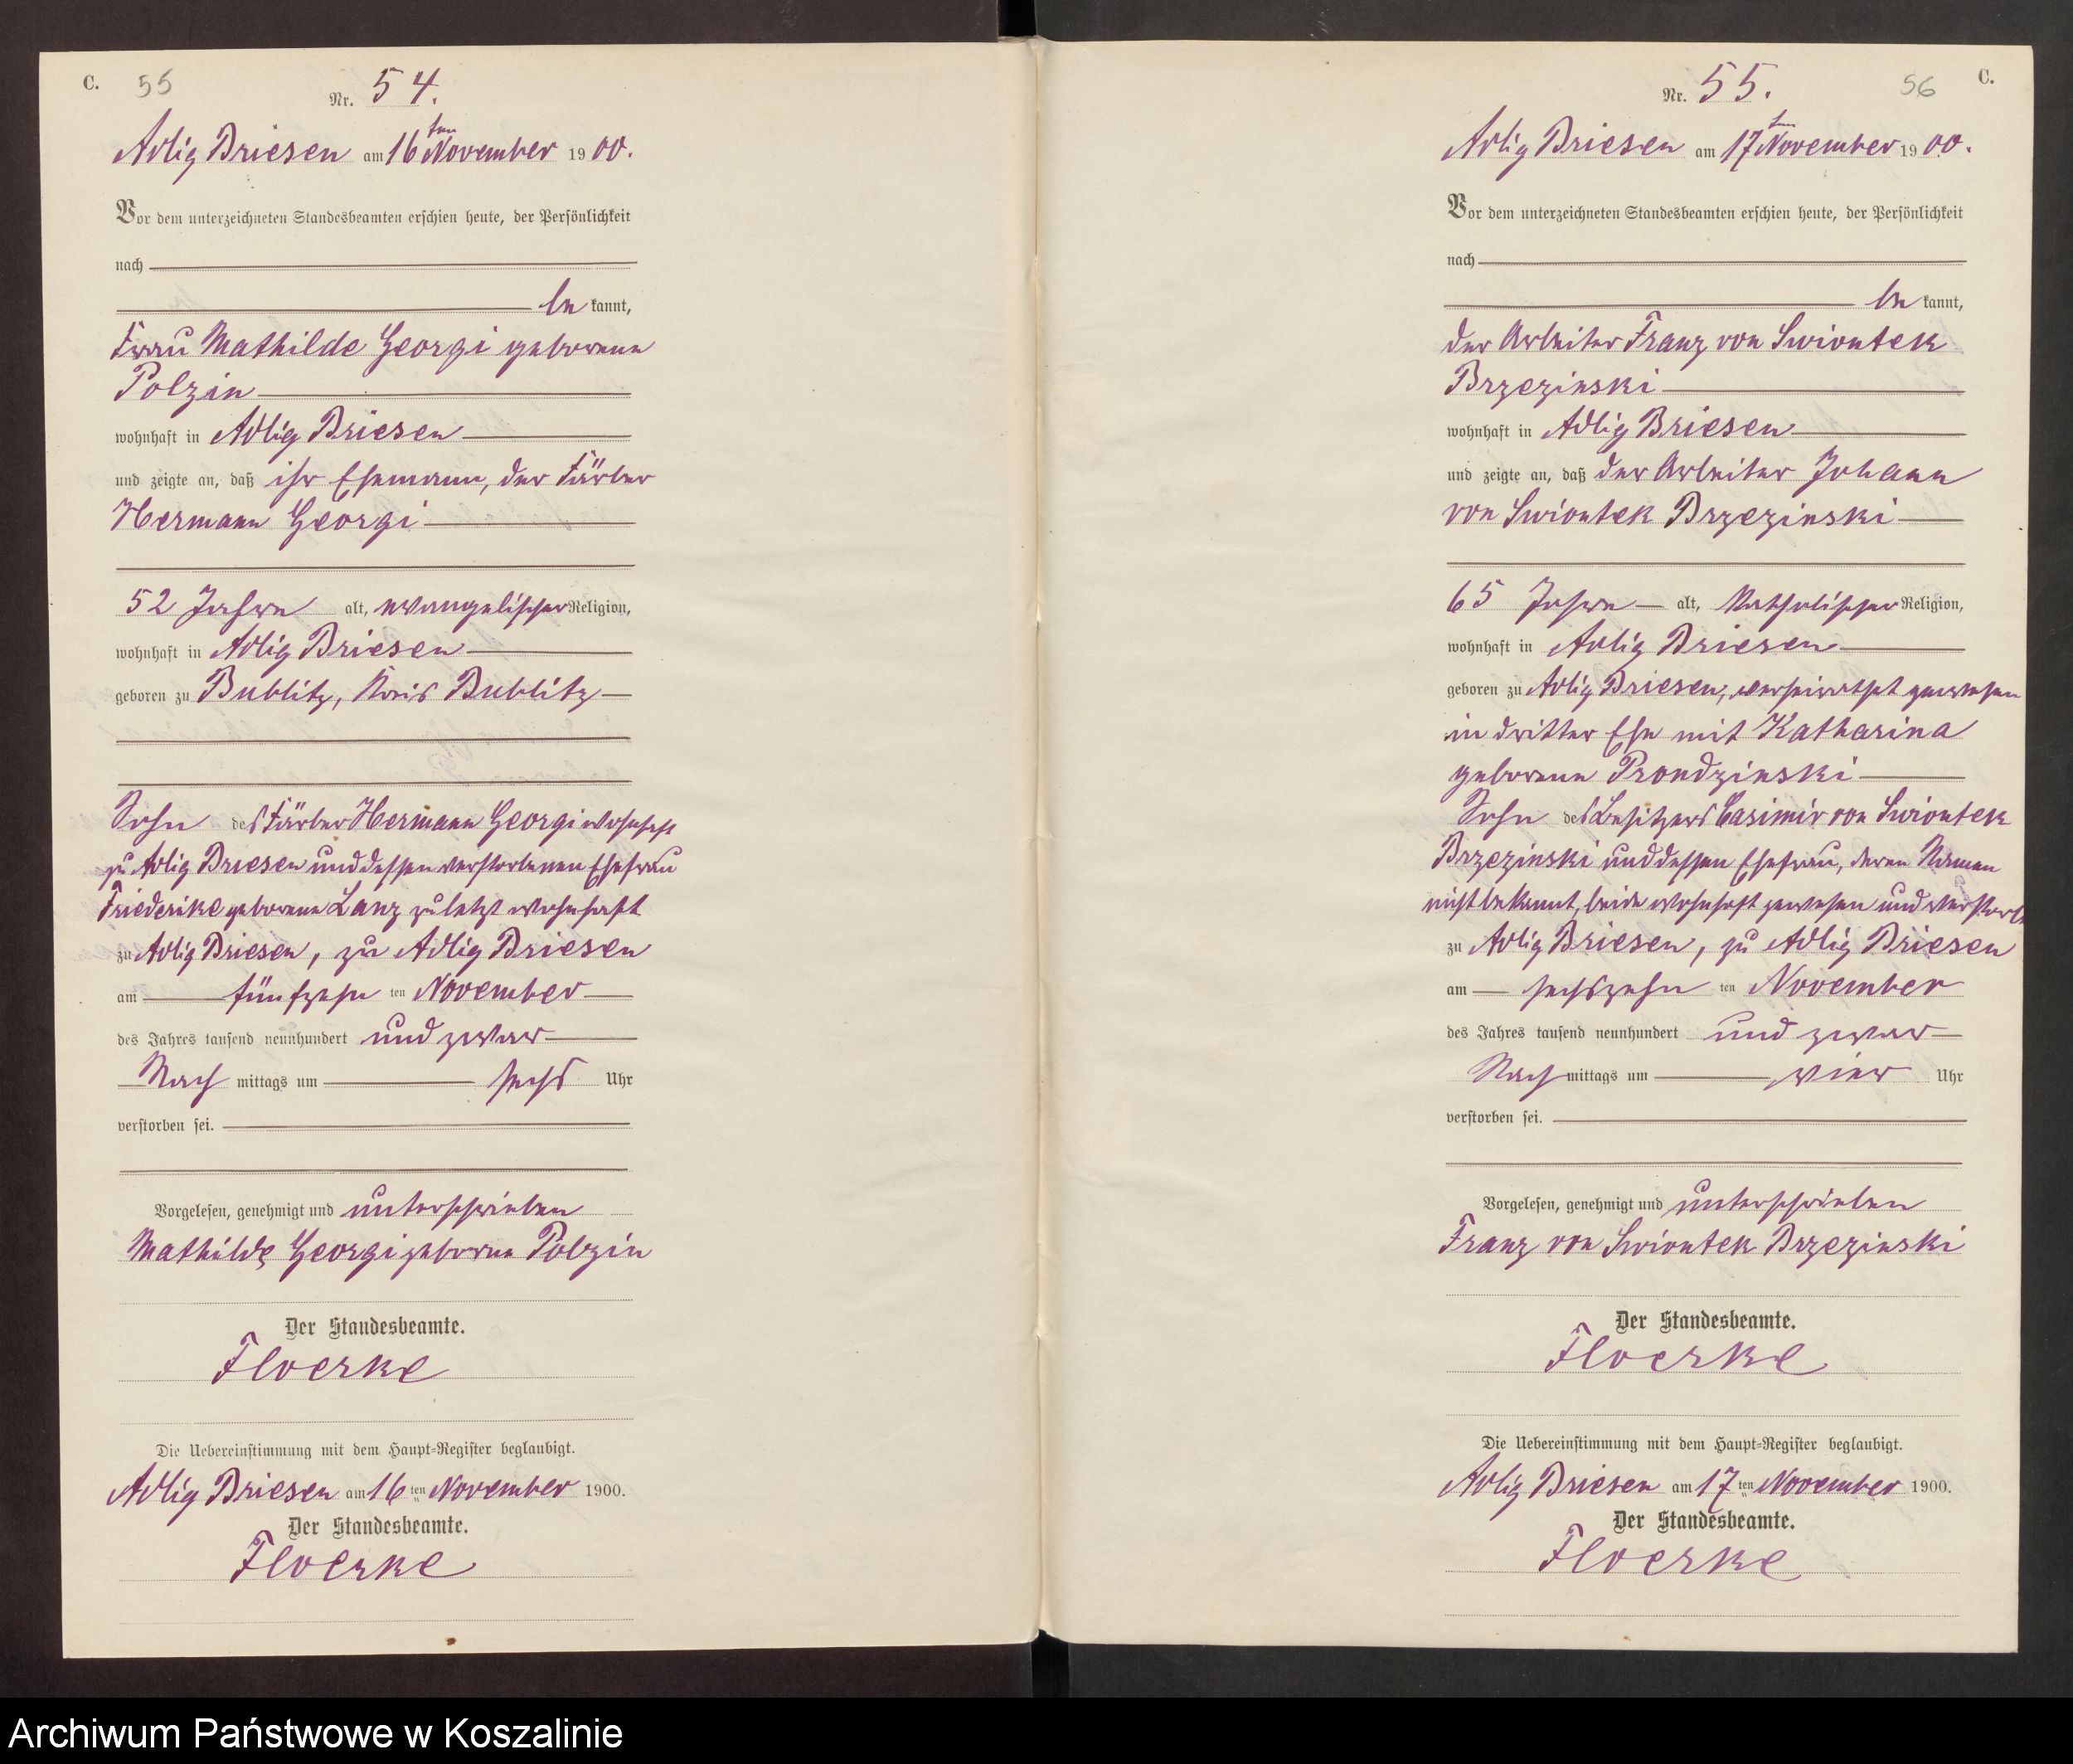 C. 55
Nr. 54.
Adlig Briesen am 16ten November 1900.
Vor dem unterzeichneten Standesbeamten erschien heute, der Persönlichkeit
nach
be kannt,
Frau Mathilde Georgi geborene
Polzin
wohnhaft in Adlig Briesen
und zeigte an, daß ihr Ehemann, der Färber
Hermann Georgi
52 Jahre alt, evangelischer Religion,
wohnhaft in Adlig Briesen
geboren zu Bublitz, Kreis Bublitz
Sohn des Färber Hermann Georgi wohnhaft
zu Adlig Briesen und dessen verstorbenen Ehefrau
Friederike geborene Lanz zuletzt wohnhaft
zu Adlig Briesen, zu Adlig Briesen
am fünfzehn ten November
des Jahres tausend neunhundert und zwar
Nach mittags um sechs Uhr
verstorben sei.
Vorgelesen, genehmigt und unterschrieben
Mathilde Georgi geborene Polzin
Der Standesbeamte.
Floerke
Die Uebereinstimmung mit dem Haupt-Register beglaubigt.
Adlig Briesen am 16 ten November 1900.
Der Standesbeamte.
Floerke
Nr. 55. 56 C.
Adlig Briesen am 17ten November 1900.
Vor dem unterzeichneten Standesbeamten erschien heute, der Persönlichkeit
nach
be kannt,
der Arbeiter Franz von Swiontek
Brzezinski
wohnhaft in Adlig Briesen
und zeigte an, daß der Arbeiter Johann
von Swiontek Brzezinski
65 Jahre alt, katholischer Religion,
wohnhaft in Adlig Briesen
geboren zu Adlig Briesen, verheirathet gewesen
in dritter Ehe mit Katharina
geborene Prondzinski
Sohn des Besitzers Casimir von Swiontek
Brzezinski und dessen Ehefrau, deren Namen
nicht bekannt, beide wohnhaft gewesen und verstorben
zu Adlig Briesen, zu Adlig Briesen
am sechszehn ten November
des Jahres tausend neunhundert und zwar
Nach mittags um vier Uhr
verstorben sei.
Vorgelesen, genehmigt und unterschrieben
Franz von Swiontek Brzezinski
Der Standesbeamte.
Floerke
Die Uebereinstimmung mit dem Haupt-Register beglaubigt.
Adlig Briesen am 17 ten November 1900.
Der Standesbeamte.
Floerke
Archiwum Państwowe w Koszalinie